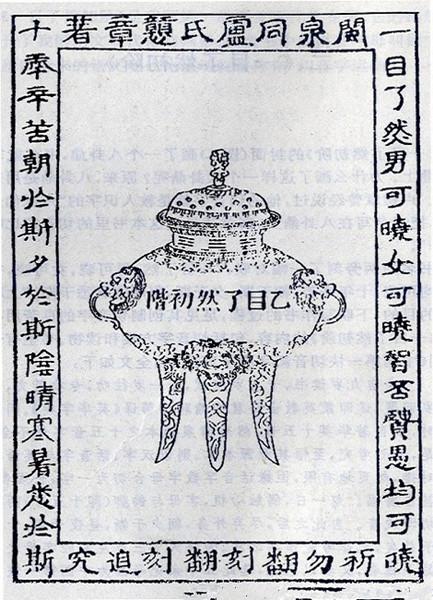 閩泉同盧氏戇章著
一目了然男可曉女可曉智否賢愚均可曉
乙目了然初階
十秊辛苦朝於斯夕於斯陰晴寒暑悉於斯
祈勿翻刻翻刻追究